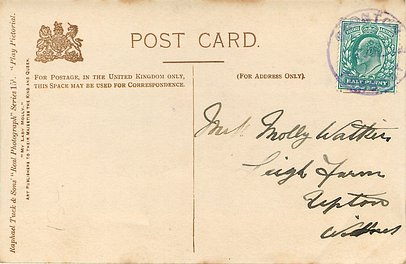 POST CARD.
FOR POSTAGE, IN THE UNITED KINGDOM ONLY,
THIS SPACE MAY BE USED FOR CORRESPONDENCE.
(FOR ADDRESS ONLY).
HALF PENNY
Molly Watkins
Leigh Farm
Upton
Raphael Tuck & Sons' "Real Photograph" Series 1
"Play Pictorial.
"MY LADY MOLLY."
ART PUBLISHERS TO THEIR MAJESTIES THE KING AND QUEEN.